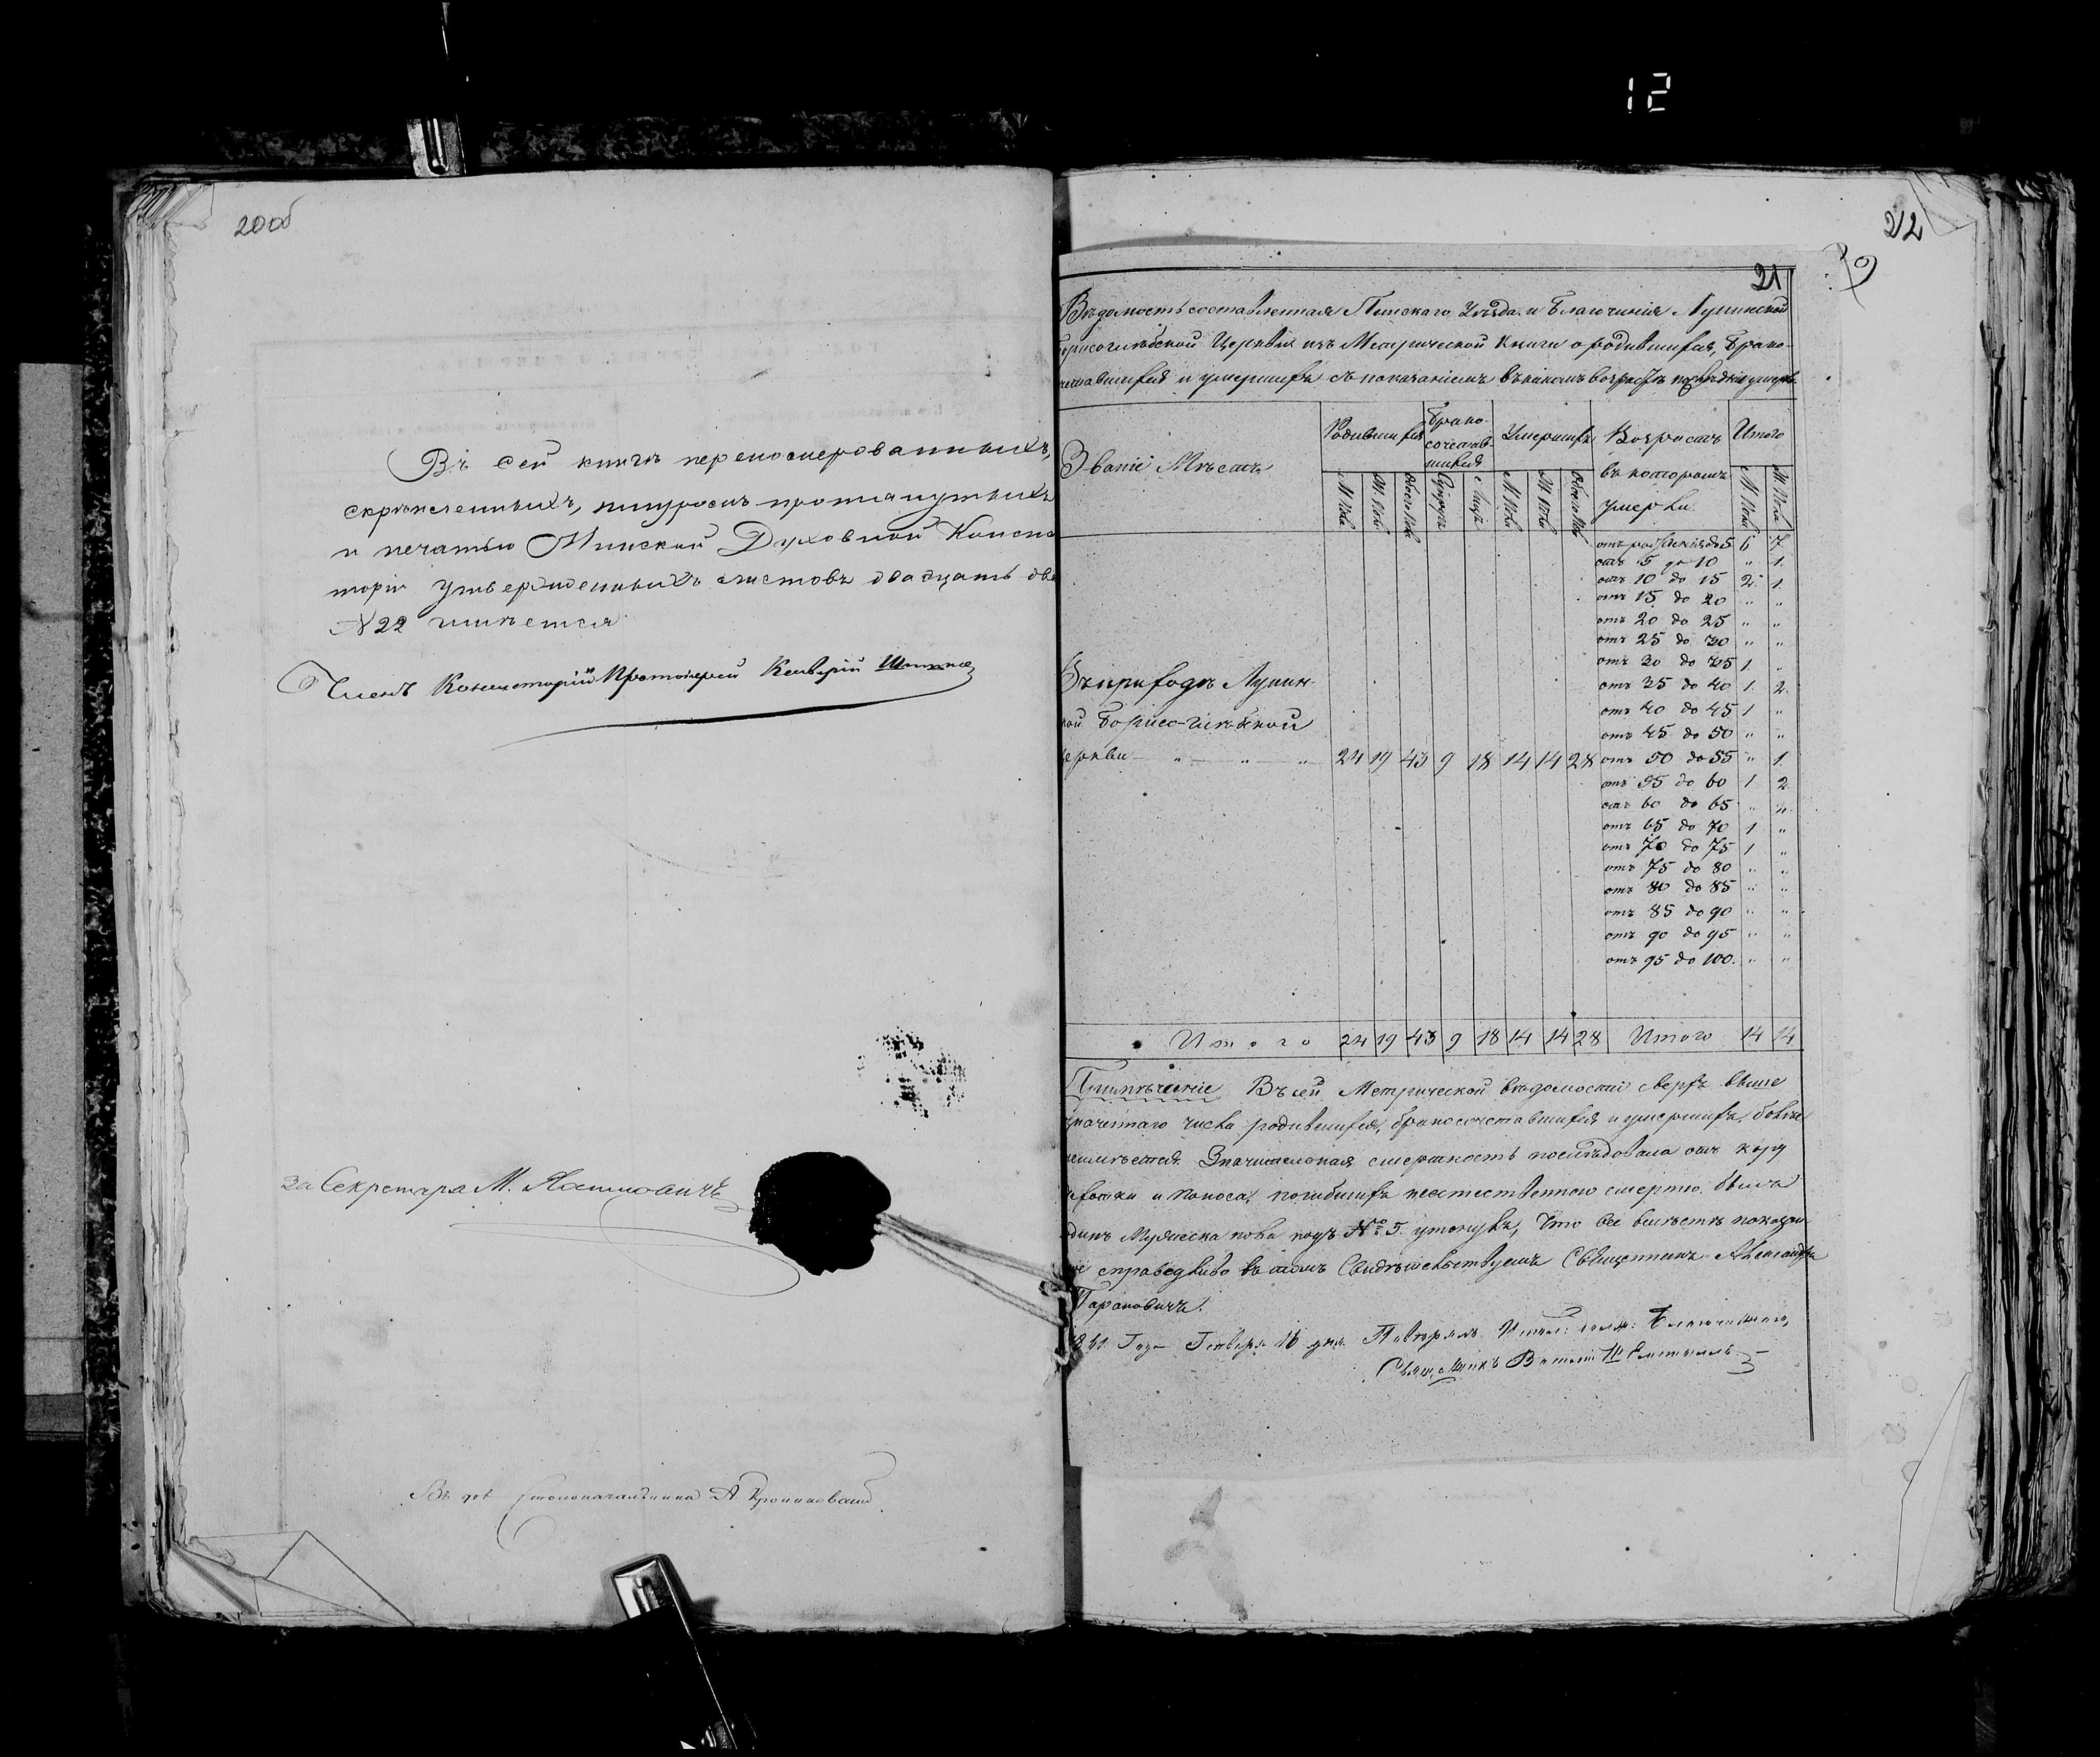 12
20 об
Въ сей книгѣ перепомерованныхъ,
скрѣпленныхъ, шнуромъ протянутыхъ
и печатью Минской Духовной Конси
торіи утвержденныхъ листовъ двадцать два
№ 22 имѣется
Членъ Консисторіи Протоіерей
За Секретаря М.
Въ дол Столоначальника А
22
21
Вѣдомость составленная Пинскаго Уѣзда и Благочинія Лунинской
Борисоглѣбской Церкви изъ Метрической Книги о родившихся, Брако-
четавшихся и умершихъ съ показаніемъ въ какомъ возрастѣ послѣдніе умерли
Званіе Мѣстъ
Родившихся
Брако-
сочетав-
шихся
Умершихъ
Возрастъ
въ которомъ
умерли
Итого
М Пола
Ж. Пола
Обоего Пола
Супруг
Лицъ
М Пола
Ж Пола
Обоего Пола
М Пола
Ж. Пола
отъ рожденія до 5 6 7
отъ 5 до 10 " 1
отъ 10 до 15 2 1
отъ 15 до 20 " "
отъ 20 до 25 " "
отъ 25 до 30 " "
отъ 30 до 35 1 "
отъ 35 до 40 1 2
отъ 40 до 45 1 "
отъ 45 до 50 " "
Въ приходѣ Лунин-
кой Борисо-глѣбской
Церкви — " — " — " 24 19 43 9 18 14 14 28 отъ 50 до 55 " 1
отъ 55 до 60 1 2
отъ 60 до 65 " "
отъ 65 до 70 1 "
отъ 70 до 75 1 "
отъ 75 до 80 " "
отъ 80 до 85 " "
отъ 85 до 90 " "
отъ 90 до 95 " "
отъ 95 до 100. " "
Итого 24 19 43 9 18 14 14 28 Итого 14 14
Примѣчаніе Въ сей Метрической вѣдомости сверхъ выше
значеннаго числа родившихся, бракосочетавшихся и умершихъ, болѣе
неимѣется. Значительная смертность послѣдовала отъ
и поноса, погибшихъ неестественною смертію былъ
одинъ Мужеска пола подъ № 5. утонувъ, Что все вмѣстѣ показан
справедливо въ томъ Свидѣтельствуемъ Священникъ Александръ
Тарановичъ.
1841 Года Генваря 16 дня Повѣрялъ Испол: долж: Благочиннаго,
Священникъ